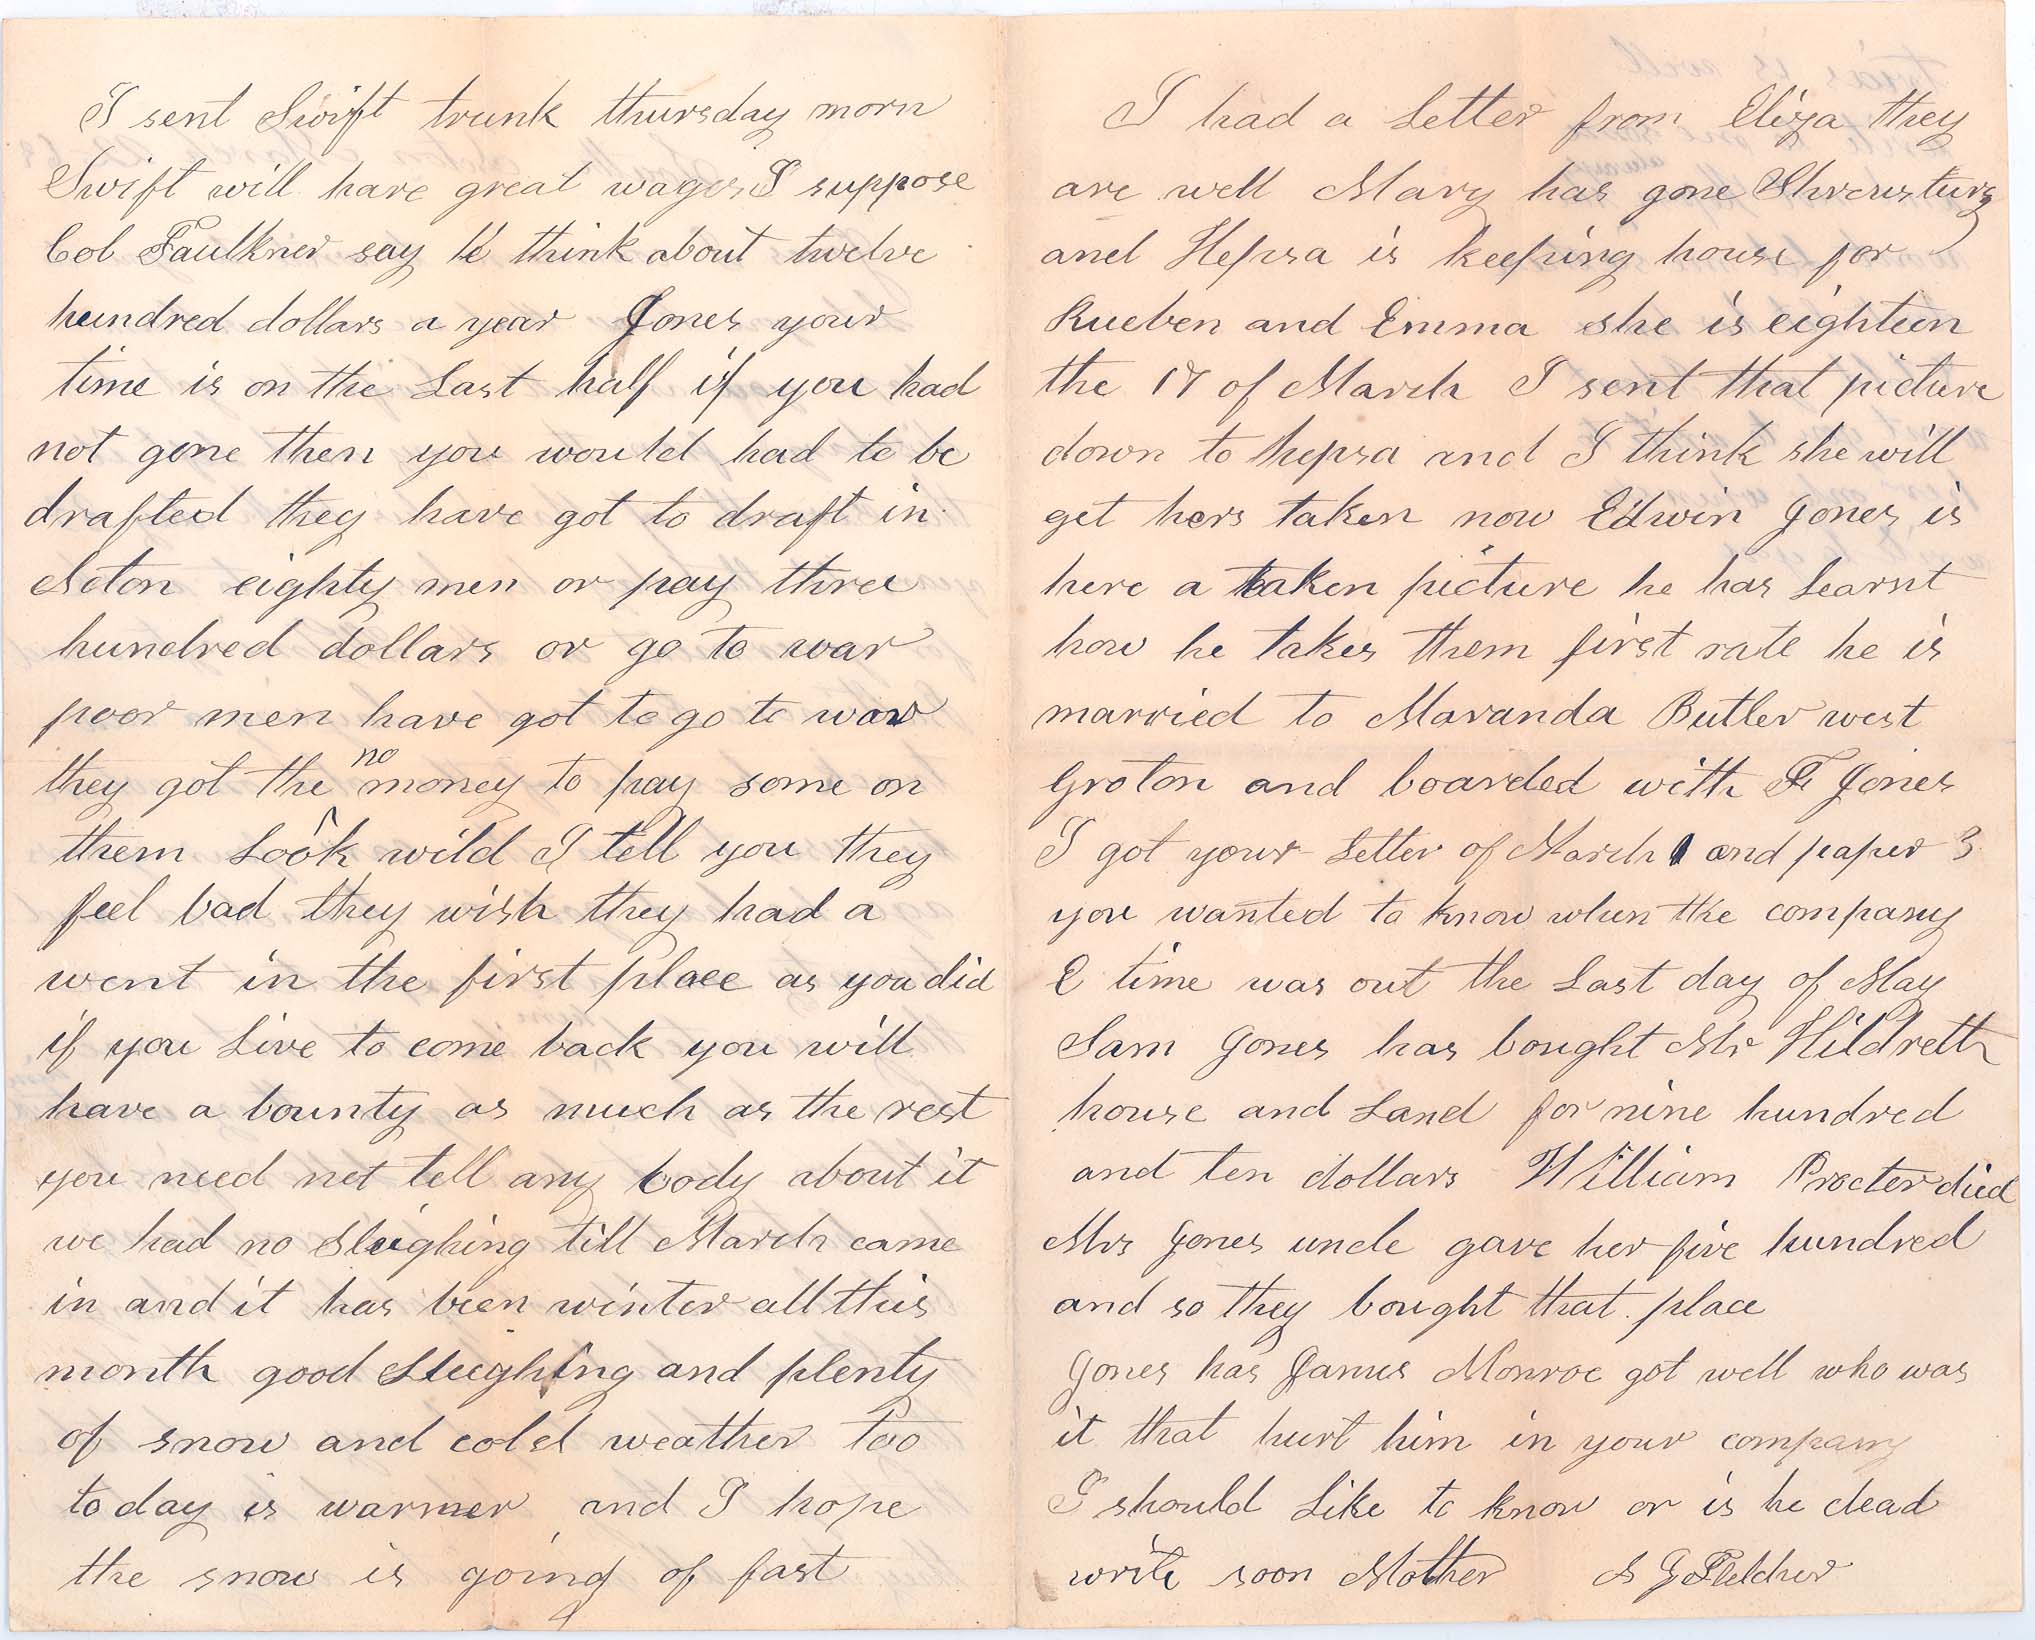 I sent Swift trunk thursday morn
Swift will have great wages I suppose
Col Faulkner say he think about twelve
hundred dollars a year Jones your
time is on the Last half if you had
not gone then you would had to be
drafted they have got to draft in
Acton eighty men or pay three
hundred dollars or go to war
poor men have got to go to war
they got the no money to pay some on
them Look wild I tell you they
feel bad they wish they had a
went in the first place as you did
if you Live to come back you will
have a bounty as much as the rest
you need not tell any body about it
we had no Sleighing till March came
in and it has been winter all this
month good Sleighing and plenty
of snow and cold weather too
to day is warmer and I hope
the snow is going of fast
I had a Letter from Eliza they
are well Mary has gone Shrewsturg
and Hepsa is keeping house for
Rueben and Emma she is eighteen
the of March I sent that picture
down to hepsa and I think she will
get hers taken now Edwin Jones is
here a taken picture he has Learnt
how he takes them first rate he is
married to Maranda Butler west
Groton and boarded with F Jones
I got your Letter of March 1 and paper 3
you wanted to know when the company
E time was out the Last day of May
Sam Jones has bought Mr Hildreth
house and Land for nine hundred
and ten dollars William Procter died
Mrs Jones uncle gave her five hundred
and so they bought that place
Jones has James Monroe got well who was
it that hurt him in your company
I should Like to know or is he dead
write soon Mother S G Fletcher